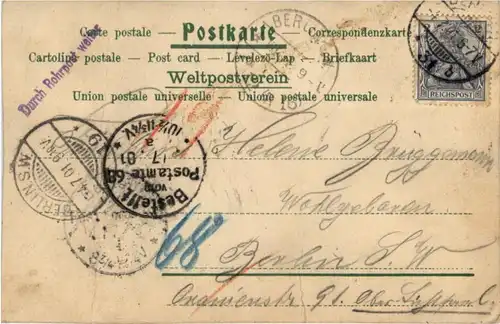 Carte postale — Postkarte — Correspondenzkarte
Cartolina postale — Post card — Levelező-Lap — Briefkaart
Weltpostverein
Union postale universelle — Unione postale universale
Durch Rohrpost weiter
REICHSPOST
BERLIN S.W.
Bestellt
vom
Postamte 68
7. 01
68
Helene Brüggemann
Wohlgeboren
Berlin S. W
Oranienstr 91.